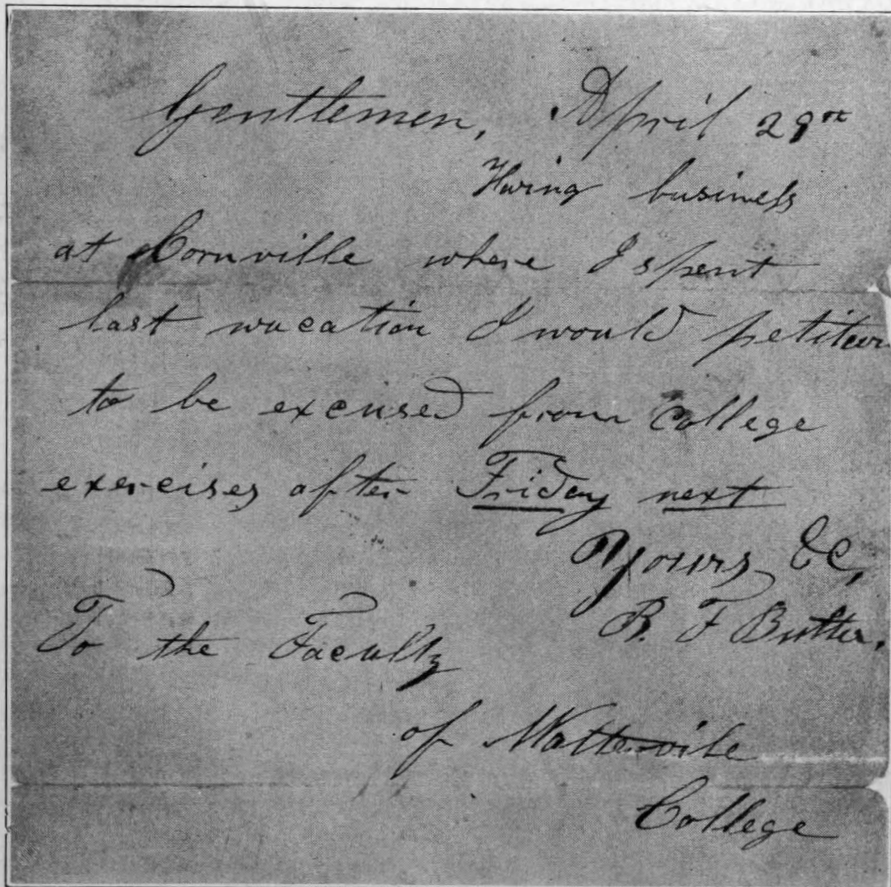 Gentlemen, April 29th
Having business
at Cornville where I spent
last vacation I would petition
to be excused from College
exercises after Friday next
Yours &C,
B. F Butler.
To the Faculty
of Watterville
College